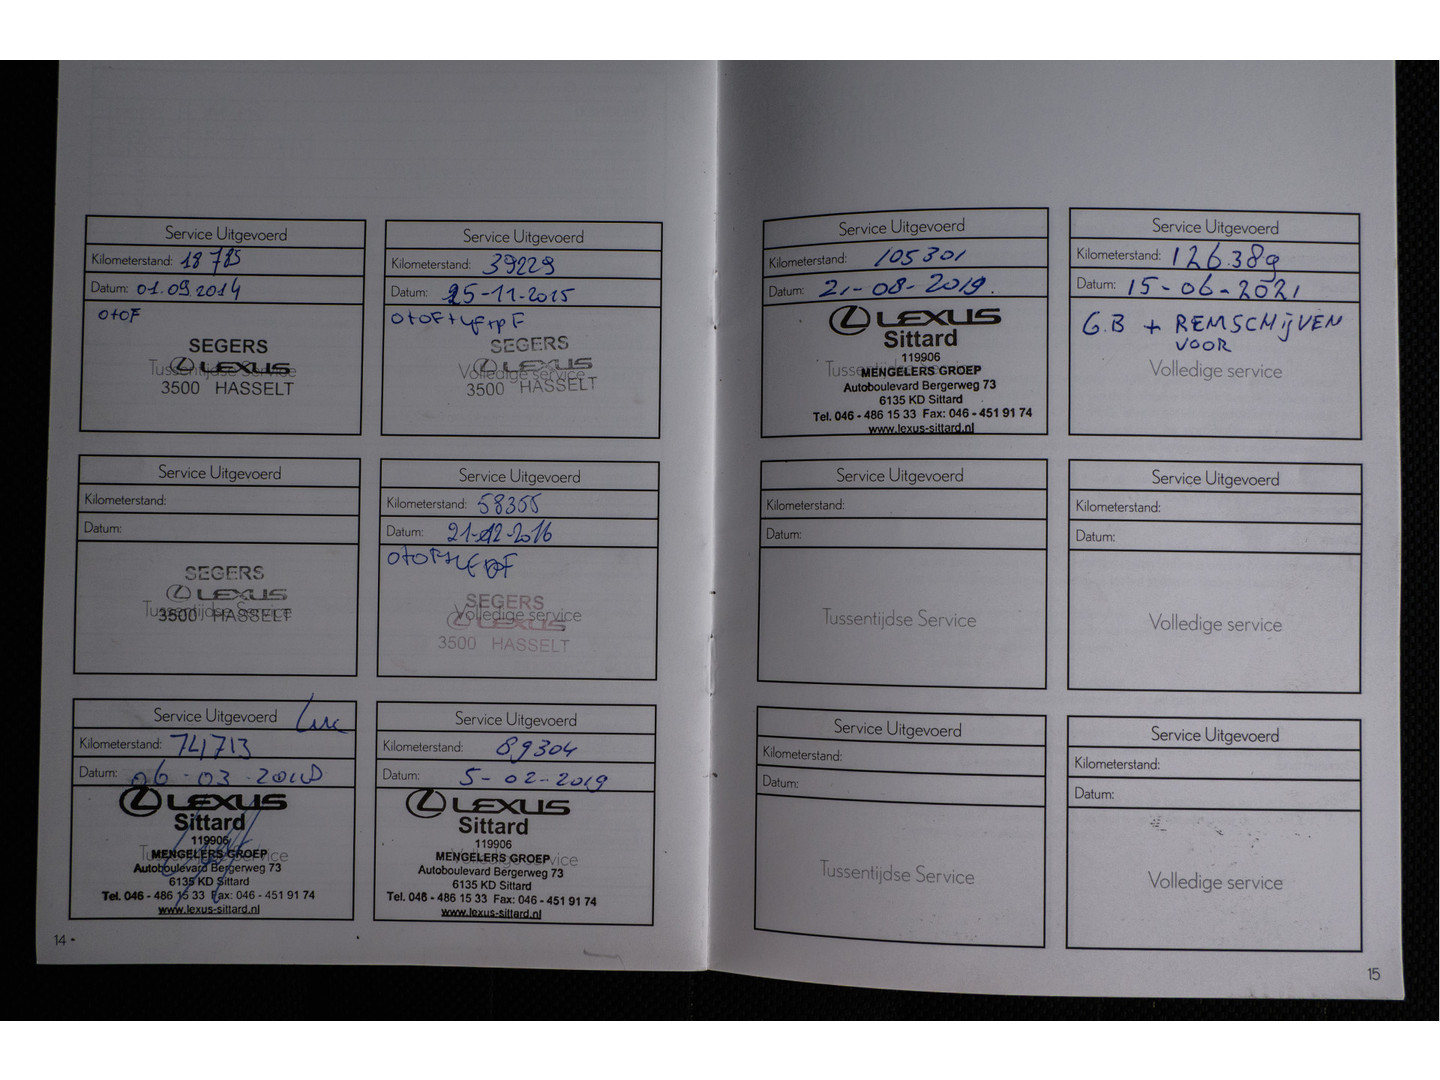 Service Uitgevoerd
Kilometerstand: 18 785
Datum: 01.09.2014
O+OF
SEGERS
LEXUS
Tussentijdse Service
3500 HASSELT
Service Uitgevoerd
Kilometerstand: 39229
Datum: 25-11-2015
O+OF+LF+pF
SEGERS
LEXUS
Volledige service
3500 HASSELT
Service Uitgevoerd
Kilometerstand:
Datum:
SEGERS
LEXUS
Tussentijdse Service
3500 HASSELT
Service Uitgevoerd
Kilometerstand: 58355
Datum: 21-12-2016
SEGERS
Volledige service
LEXUS
3500 HASSELT
Service Uitgevoerd
Kilometerstand: 74713
Datum: 06-03-2018
LEXUS
Sittard
119906
MENGELERS GROEP
Tussentijdse Service
Autoboulevard Bergerweg 73
6135 KD Sittard
Tel. 046 - 486 15 33 Fax: 046 - 451 91 74
www.lexus-sittard.nl
Service Uitgevoerd
Kilometerstand: 89304
Datum: 5-02-2019
LEXUS
Sittard
119906
MENGELERS GROEP
Volledige service
Autoboulevard Bergerweg 73
6135 KD Sittard
Tel. 046 - 486 15 33 Fax: 046 - 451 91 74
www.lexus-sittard.nl
14
Service Uitgevoerd
Kilometerstand: 105301
Datum: 21-08-2019.
LEXUS
Sittard
119906
Tussentijdse Service
MENGELERS GROEP
Autoboulevard Bergerweg 73
6135 KD Sittard
Tel. 046 - 486 15 33 Fax: 046 - 451 91 74
www.lexus-sittard.nl
Service Uitgevoerd
Kilometerstand: 126.389
Datum: 15-06-2021
G.B + REMSCHIJVEN
VOOR
Volledige service
Service Uitgevoerd
Kilometerstand:
Datum:
Tussentijdse Service
Service Uitgevoerd
Kilometerstand:
Datum:
Volledige service
Service Uitgevoerd
Kilometerstand:
Datum:
Tussentijdse Service
Service Uitgevoerd
Kilometerstand:
Datum:
Volledige service
15